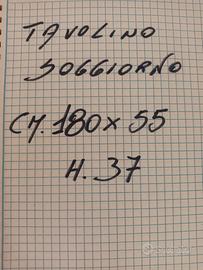 TAVOLINO
SOGGIORNO
CM. 180 x 55
H. 37